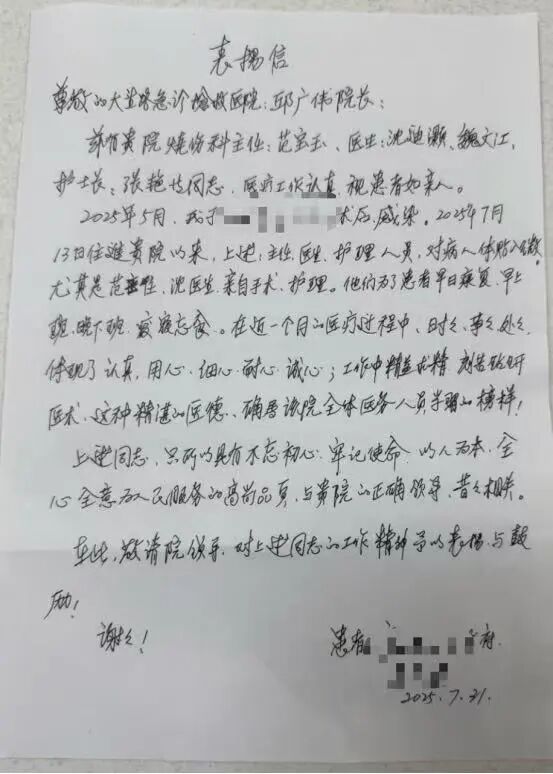 表扬信
尊敬的大益路急诊抢救医院:邱广伟院长:
兹有贵院烧伤科主任:范宝玉、医生:沈迎灏、魏文江,
护士长:张艳玲同志,医疗工作认真,视患者如亲人。
2025年5月,我于 术后,感染。2025年7月
13日住进贵院以来,上述:主任、医生、护理人员,对病人体贴入微
尤其是范主任、沈医生,亲自手术、护理。他们为了患者早日康复,早上
班、晚下班、废寝忘食。在近一个月的医疗过程中,时时、事事、处处,
体现了认真、用心、细心、耐心、诚心;工作中精益求精,刻苦钻研
医术,这种精湛的医德、确是该院全体医务人员学习的榜样!
上述同志,只所以具有不忘初心,牢记使命,以人为本,全
心全意为人民服务的高尚品质,与贵院的正确领导,昔昔相关。
在此,敬请院领导,对上述同志的工作精神予以表扬与鼓
励!
谢谢!
患者 府
2025.7.31.